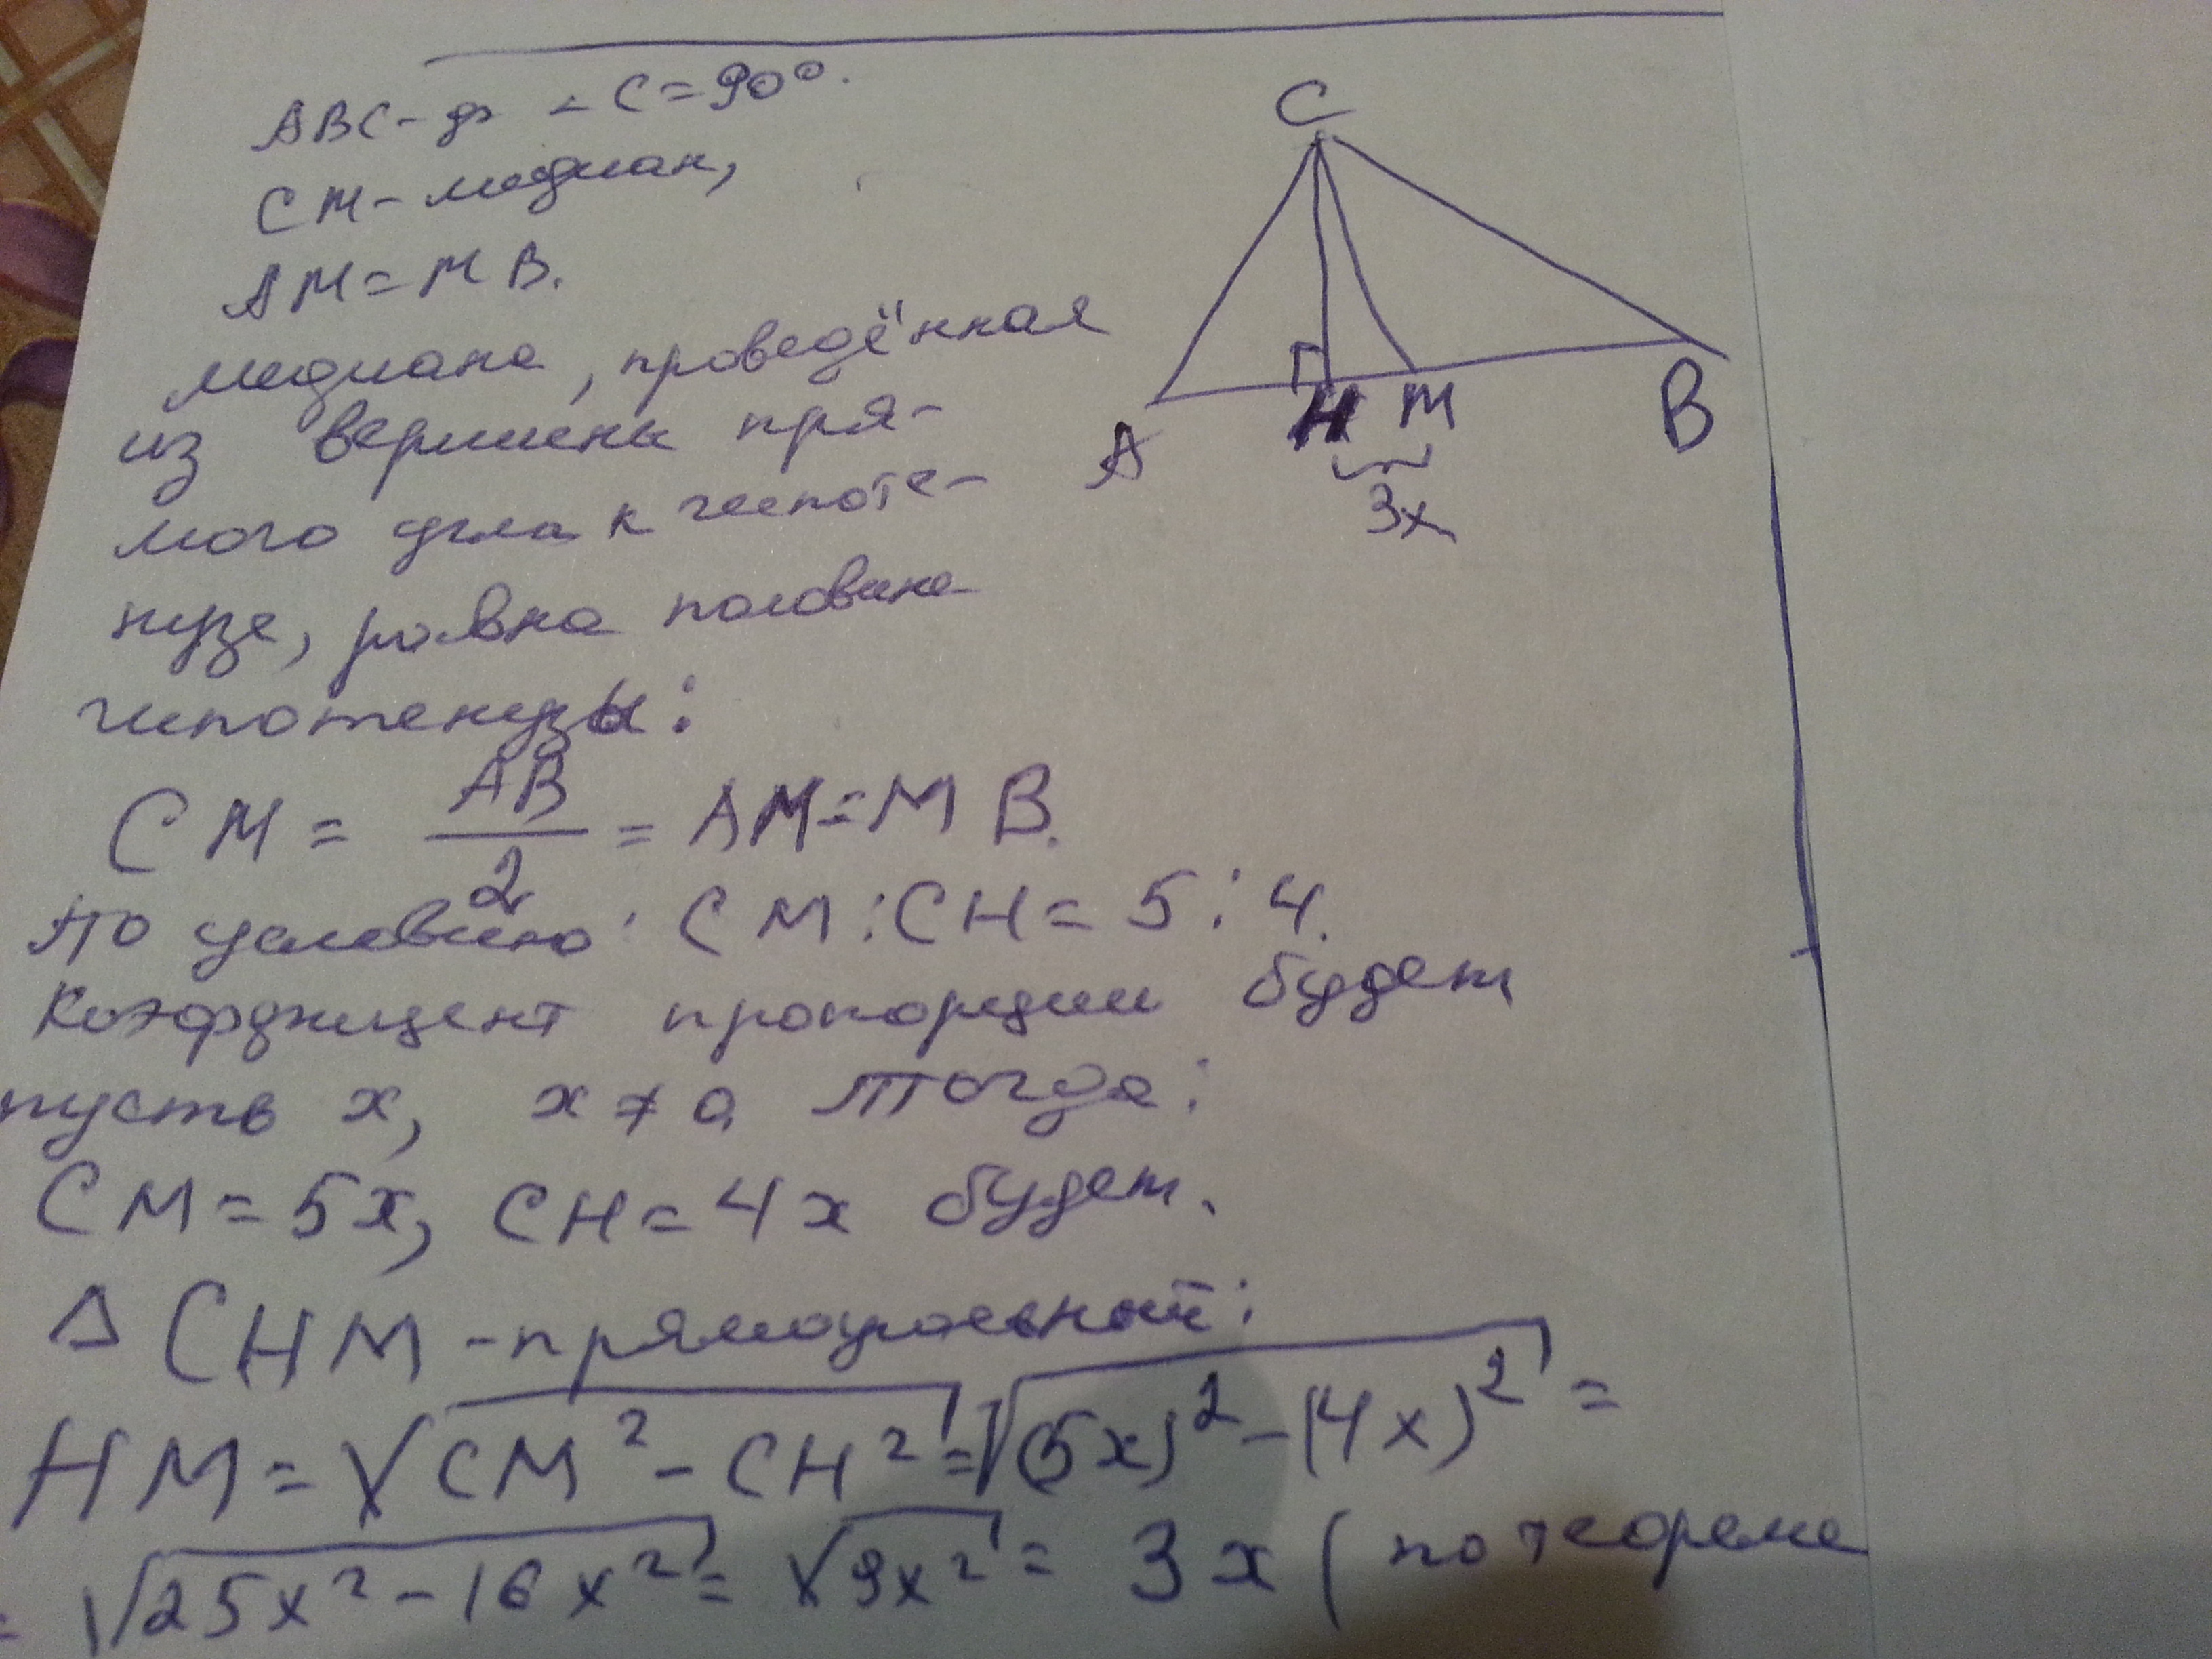 ABC - ∠C = 90°.
CM - медиан,
AM = MB.
медиана, проведённая
из вершины пря-
мого угла к гипоте-
нузе, равна половине
гипотенузы:
CM = AB/2 = AM = MB.
По условию: CM : CH = 5 : 4.
Коэффициент пропорции будет
пусть x, x ≠ 0 тогда:
CM = 5x, CH = 4x будет.
Δ CHM - прямоугольный:
HM = √(CM² - CH²) = √((5x)² - (4x)²) =
= √(25x² - 16x²) = √(9x²) = 3x (по теореме
C
A
H
M
B
3x